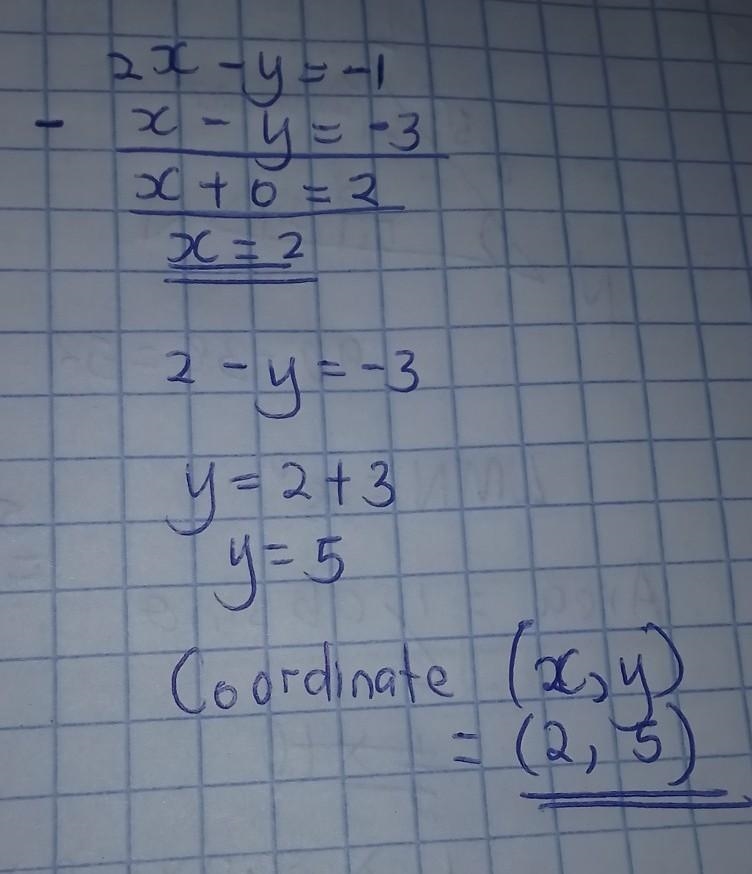 2x - y = -1
- x - y = -3
x + 0 = 2
x = 2
2 - y = -3
y = 2 + 3
y = 5
Coordinate (x, y)
= (2, 5)